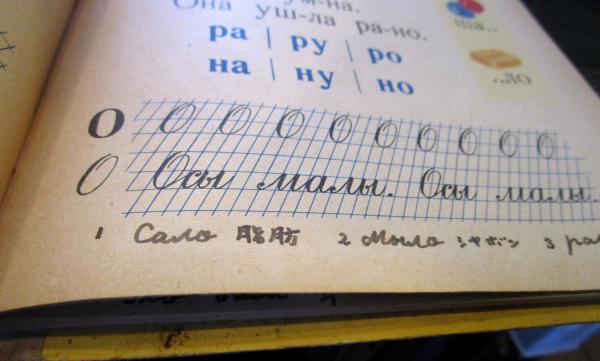 ум-на.
Она уш-ла ра-но.
ра | ру | ро
на | ну | но
ша..
..ло
О О О О О О О О О О
О Осы малы. Осы малы.
1 Сало 脂肪 2 Мыло シャボン 3